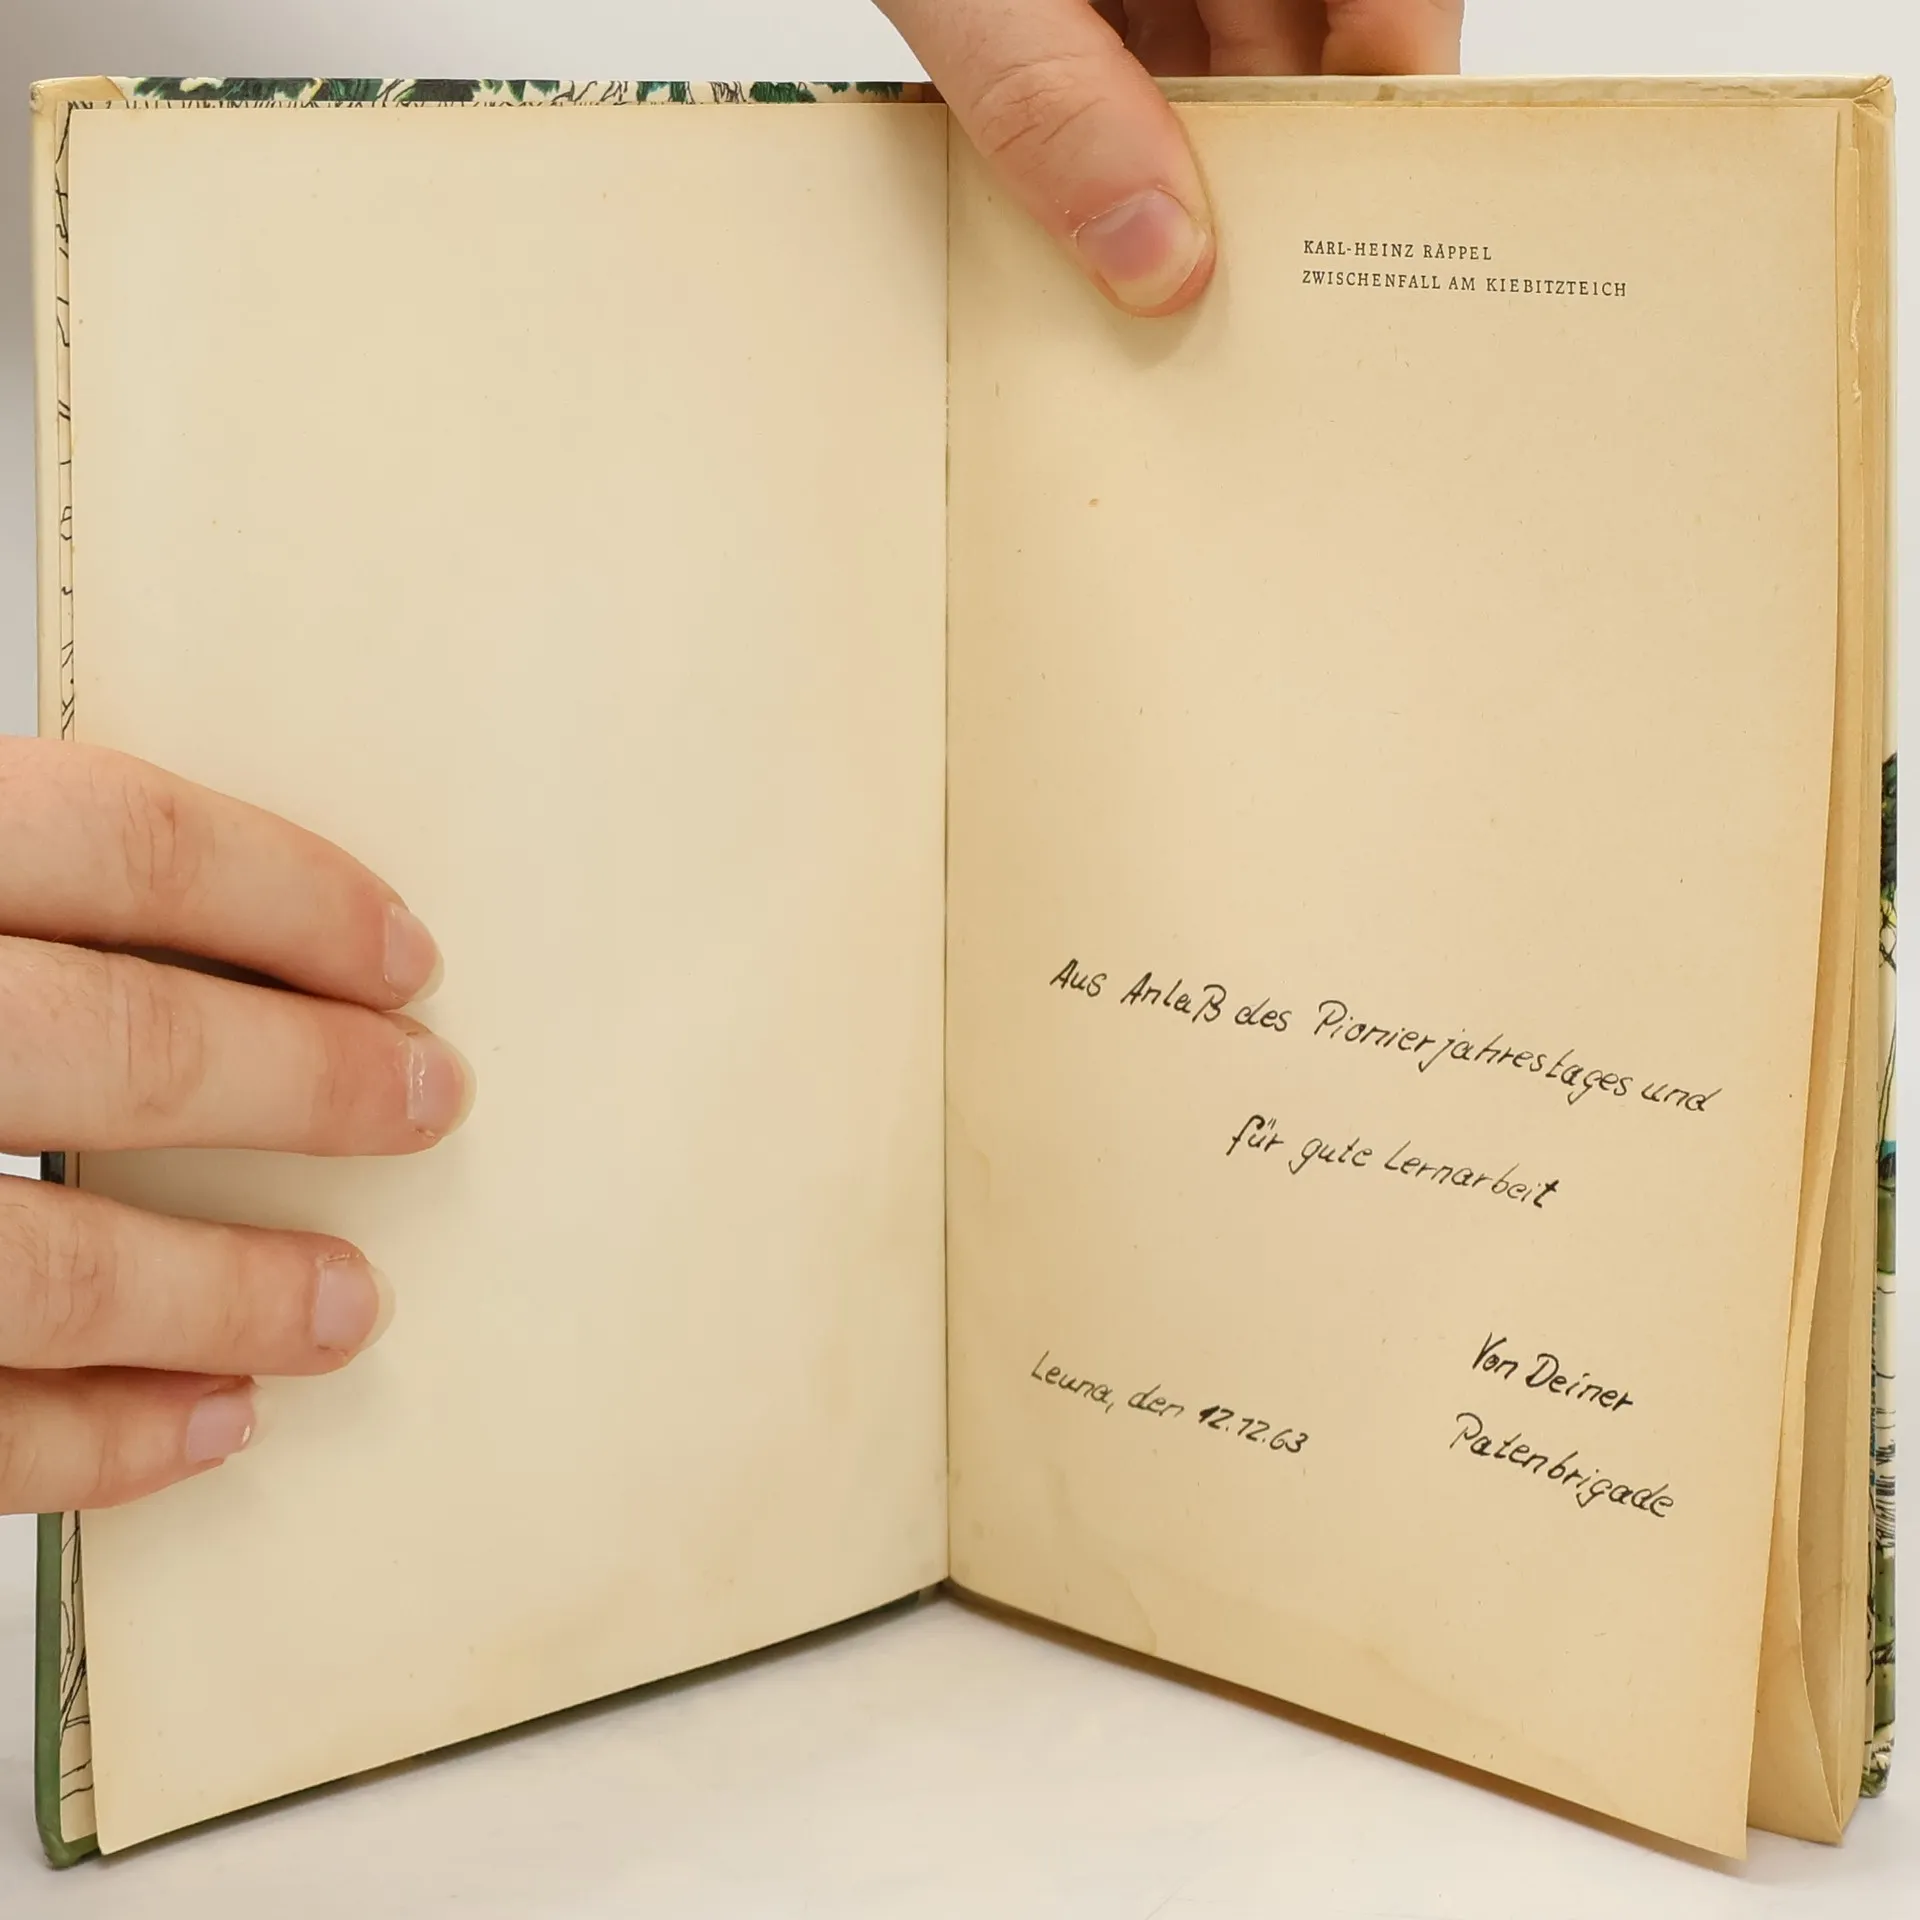 KARL-HEINZ RÄPPEL
ZWISCHENFALL AM KIEBITZTEICH
Aus Anlaß des Pionierjahrestages und
für gute Lernarbeit
Von Deiner
Leuna, den 12.12.63
Patenbrigade